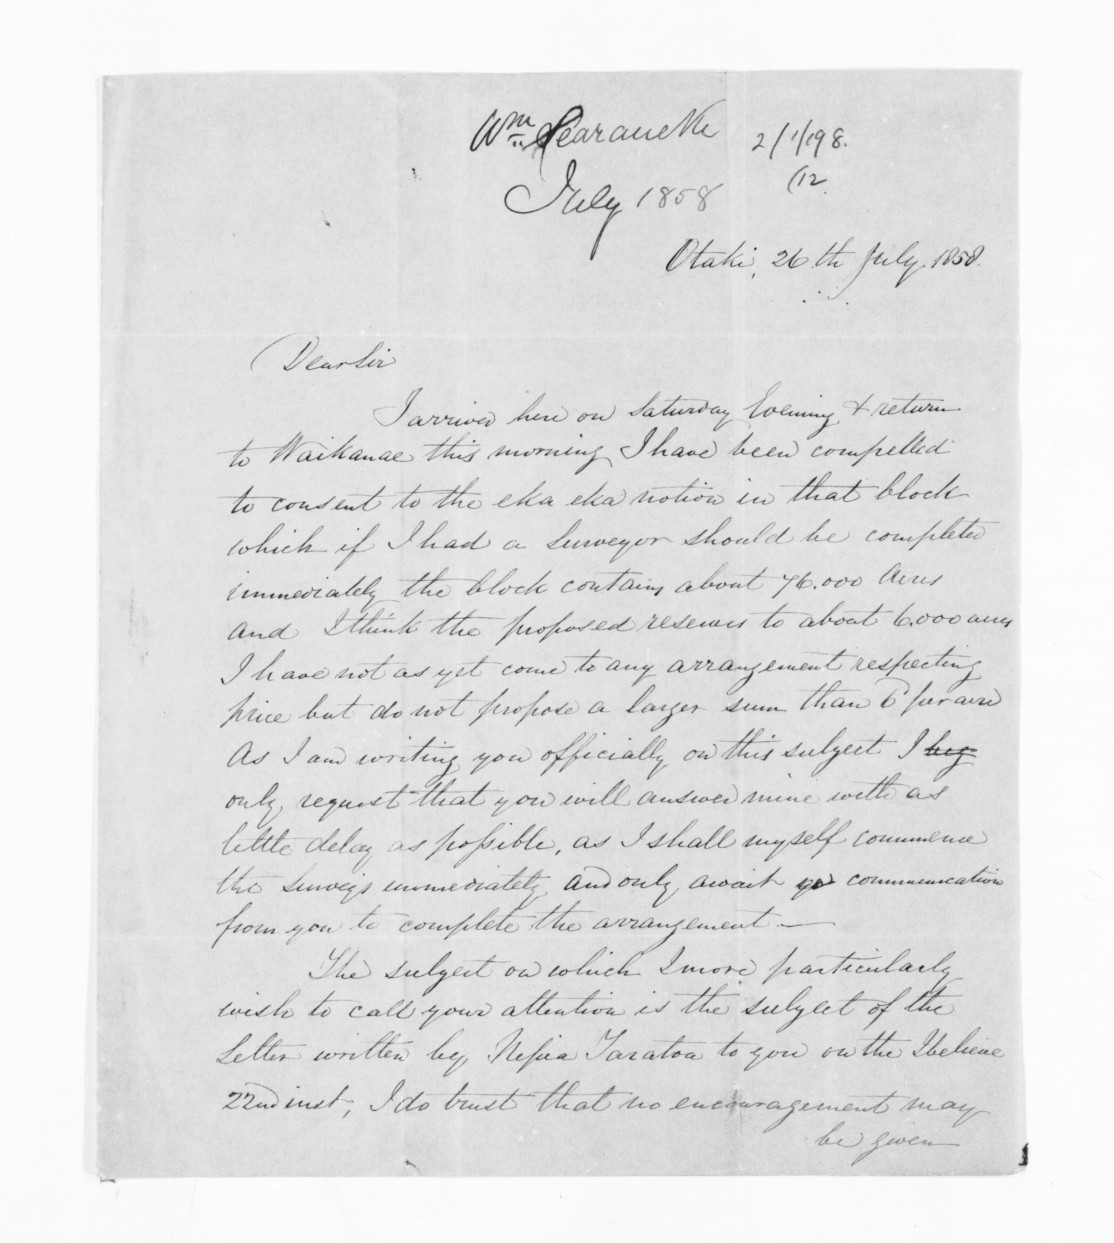 Wm Searancke
2/1/198.
(12.
July 1858
Otaki, 26th July. 1858.
Dear Sir
I arrived here on Saturday Evening & return
to Waikanae this morning I have been compelled
to consent to the eka eka notion in that block
which if I had a Surveyor should be completed
immediately the block contains about 76.000 Acres
and I think the proposed reserves to about 6.000 acres
I have not as yet come to any arrangement respecting
price but do not propose a larger sum than 6 per acre
As I am writing you officially on this subject I beg
only request that you will answer mine with as
little delay as possible, as I shall myself commence
the Surveys immediately and only await communication
from you to complete the arrangement —
The subject on which I more particularly
wish to call your attention is the subject of the
Letter written by Nepia Taratoa to you on the I believe
22nd inst; I do trust that no encouragement may
be given